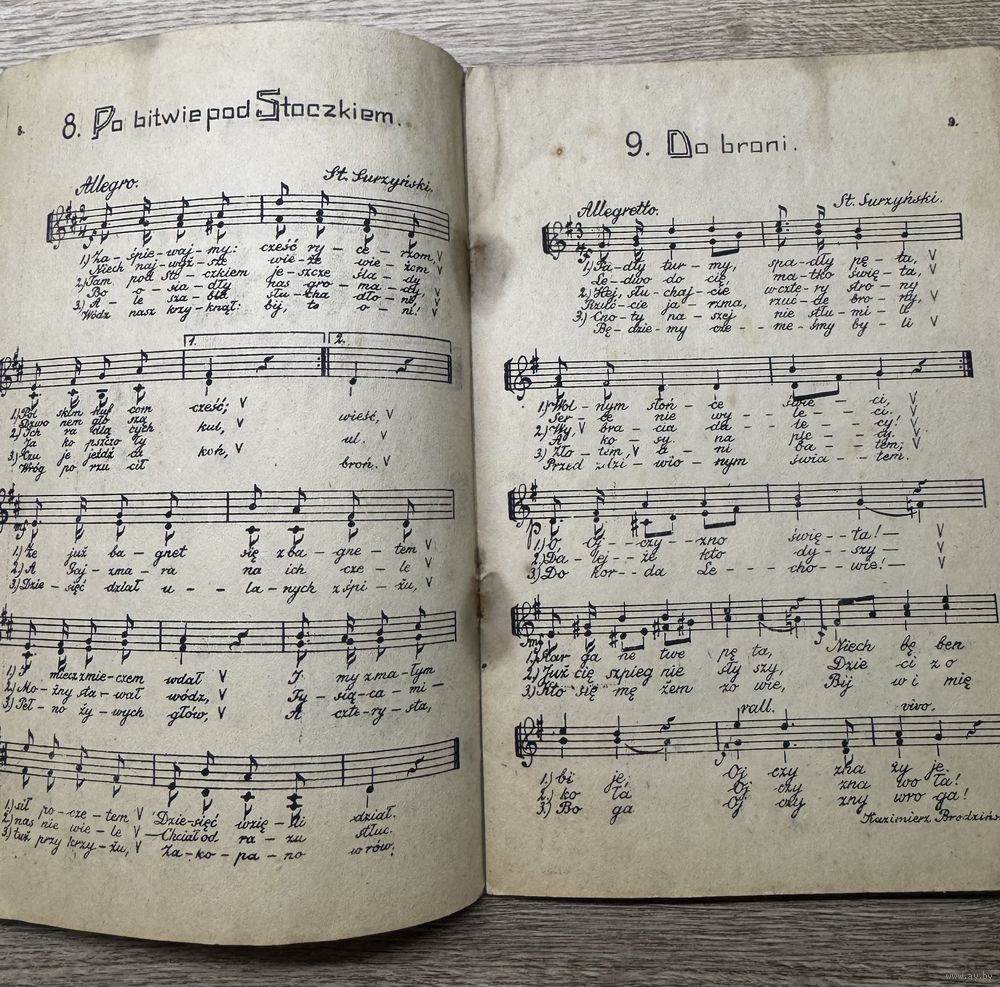 8.
8. Po bitwie pod Stoczkiem.
Allegro.
St. Surzyński.
1) Za - śpie - waj - my: cześć ry - ce - rzom, V
Niech naj - wyż - sze wie - że wie - żom V
2) Tam pod Sto - czkiem je - szcze śla - dy
Bo - o - sia - dły nas gro - ma - dy, V
3) A - le sza - bla słu - cha dło - ni, V
Wódz nasz krzy - knął: bij, to o - ni! V
1. 2.
1) Pol skim huf com cześć, V wieść, V
Dzwo nem gło szą
2) Ich ra dła cych kul, V ul. V
Ja ko pszczo ły
3) Czu je jeźdź ca koń, V broń. V
Wróg po rzu cił
mf
1) Że już ba - gnet się z ba - gne - tem V
2) A Gaj - zma - ra na ich cze - le V
3) Dzie - sięć dział u - - ła - nych z spi - żu, V
1) I miecz z mie - czem wdał V I my z ma - łym
2) Mo - żny sta - wał wódz, V Ty - sią - ca - mi -
3) Peł - no ży - wych głów, V A czte - ry - sta,
1) sił po - cze - tem V Dzie - sięć wzię - li dział.
2) nas nie wie - le V - Chciał od ra - zu stłuc.
3) tuż przy krzy - żu, V Za - ko - pa - no w rów.
9.
9. Do broni.
Allegretto.
St. Surzyński.
1) Pa - dły tur - my, spa - dły pę - ta, V
Le - dwo do cię, ma - tko świę - ta, V
2) Hej, słu - chaj - cie w czte - ry stro - ny
Rzuć - cie ja - rzma, rzuć - cie bro - ny, V
3) Cno - ty na - szej nie stłu - mi - li
Bę - dzie - my cze - me - śmy by - li V
1) Wol - nym słoń - ce świe - ci, V
Ser - ce nie wy - le - ci. V
2) Wy, V bra - cia da - le - cy! V
A ko - sy. na ple - cy. V
3) Zło - tem, V a - ni ba - tem; V
Przed zdzi - wio - nym świa - tem. V
p
1) O, Oj - - czy - zno świę - ta! - V
2) Da - lej - że kto dy - szy - V
3) Do kor - - da Le - - cho - wie! - V
mf
1) Tar ga ne twe pę ta, Niech bę ben
2) Już cię szpieg nie sły szy, Dzie ci z o
3) Kto się mę żem zo wie, Bij w i mię
rall. vivo.
1) bi je, Oj czy zna ży je.
2) ko ła Oj czy zna wo ła!
3) Bo ga Oj czy zny wro ga!
Kazimierz Brodzińs
www.ay.by